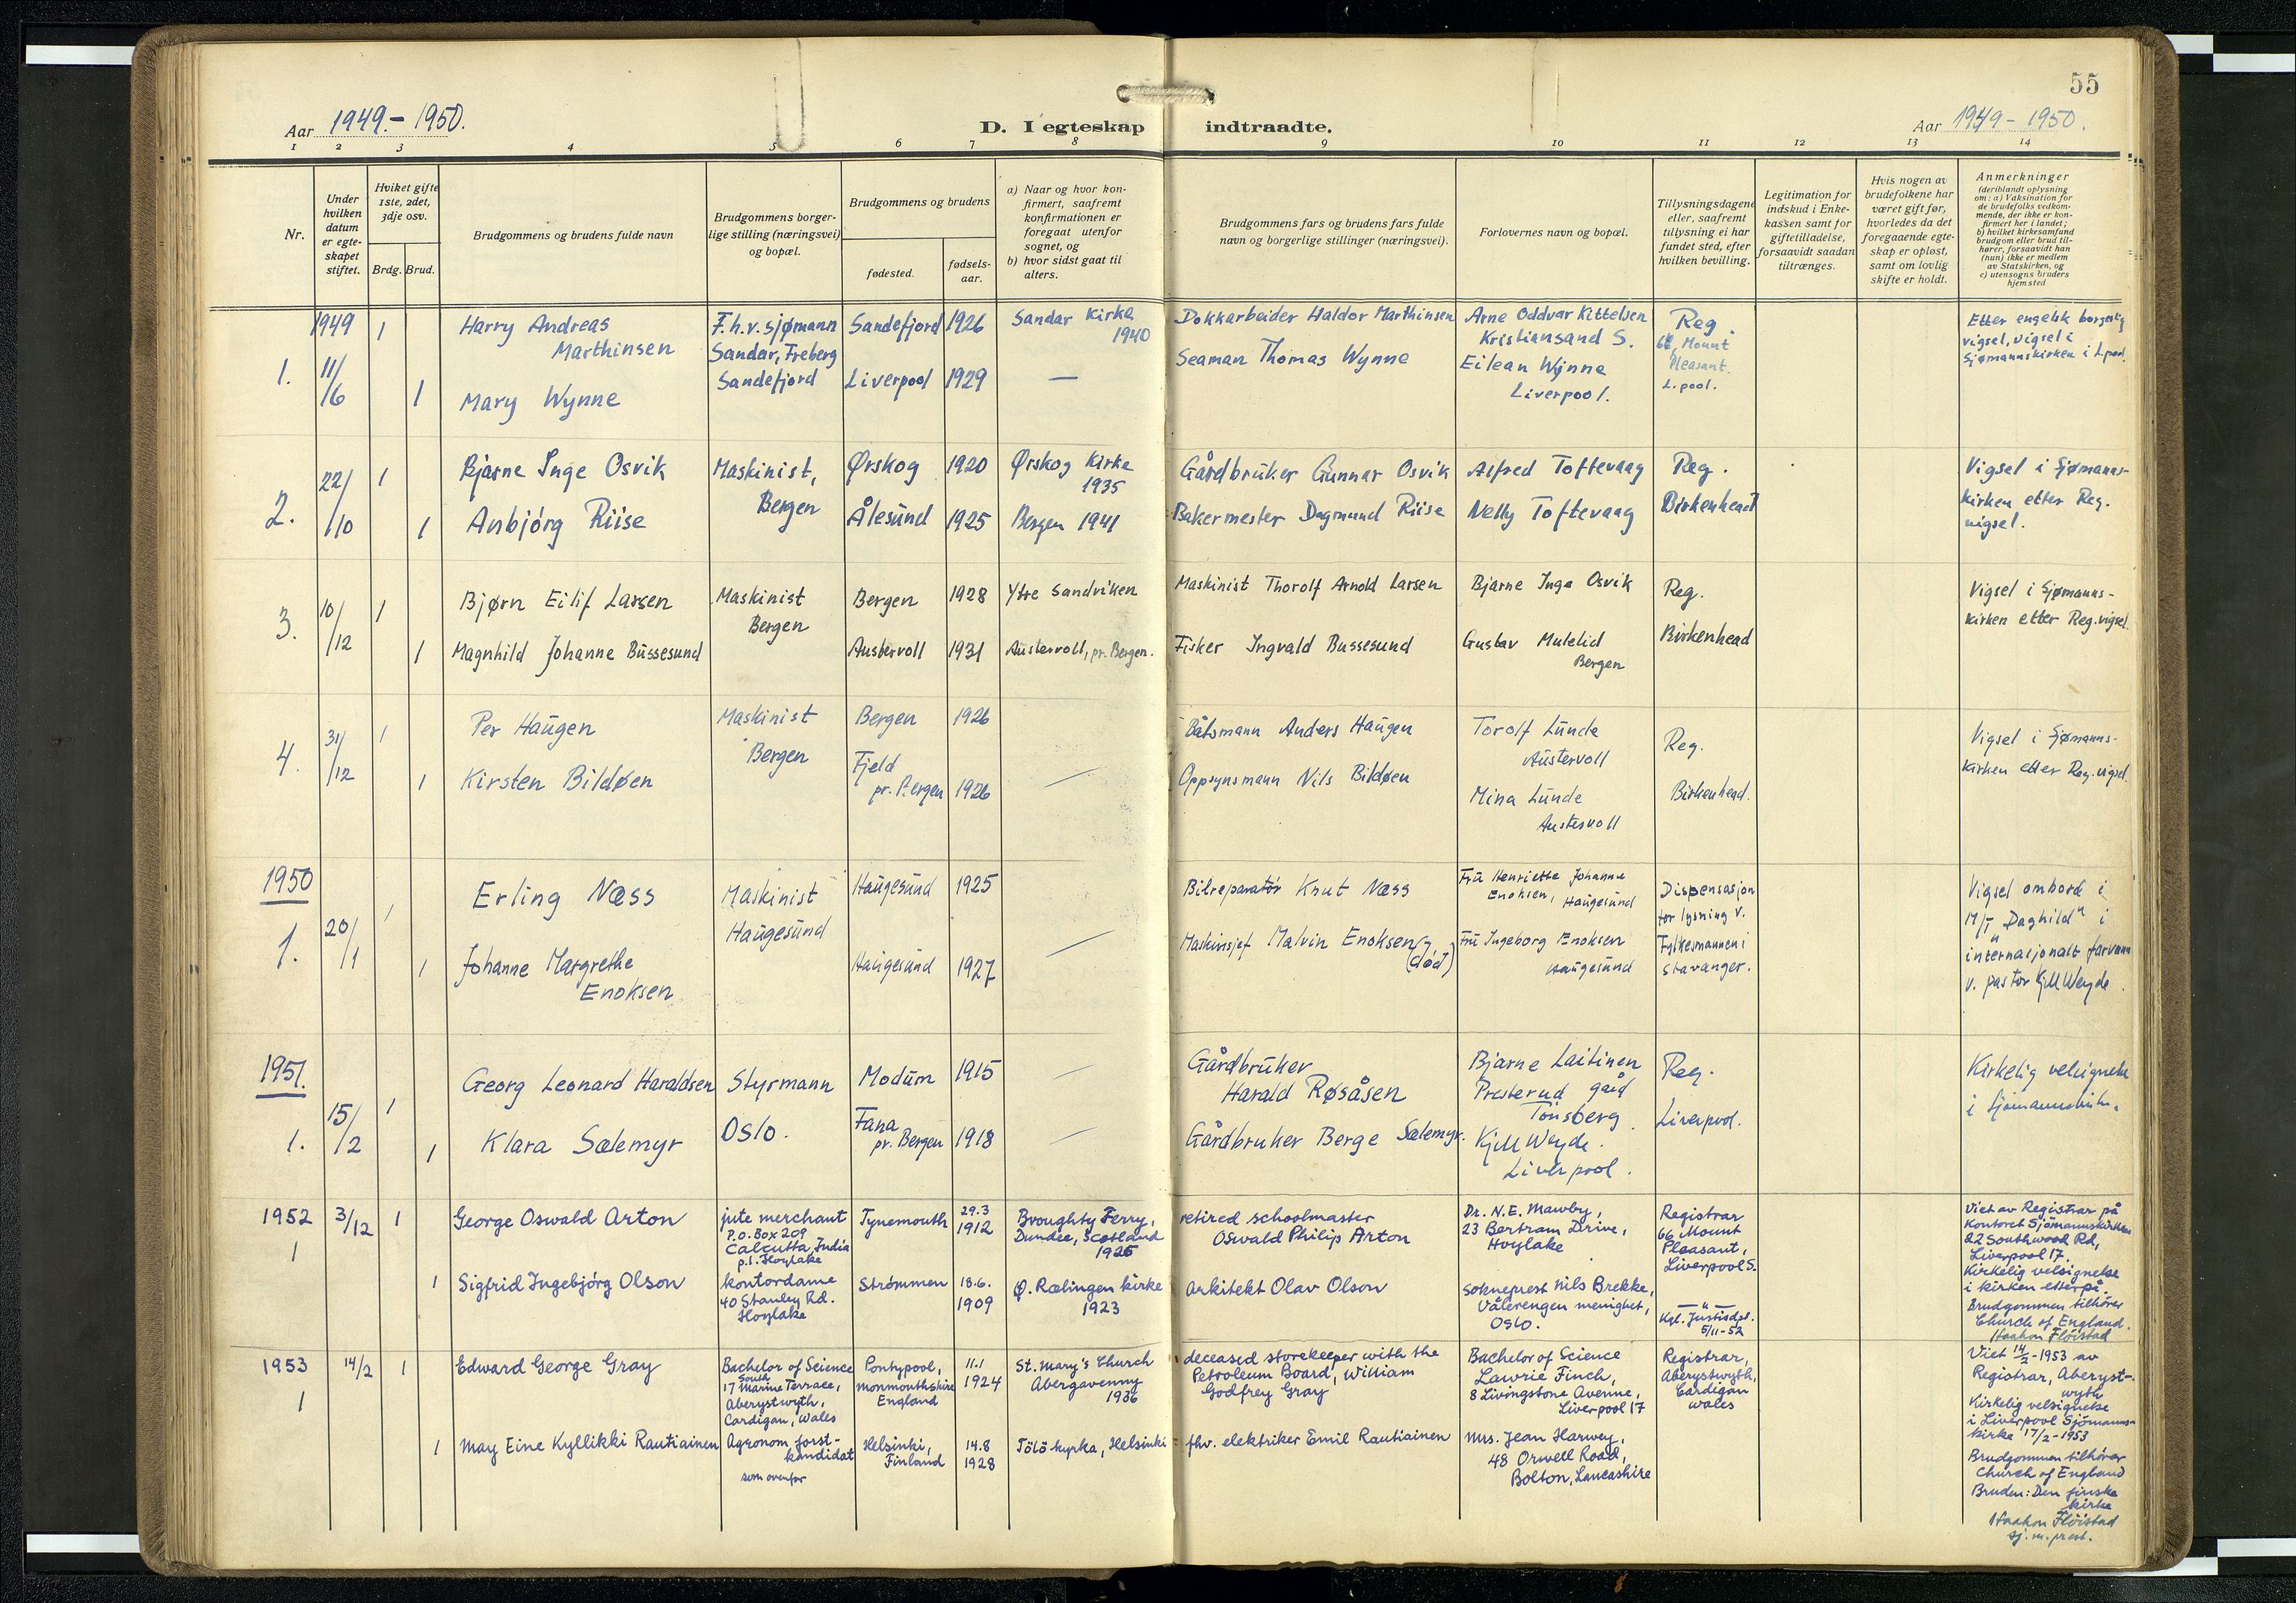 55
Aar 1949.- 1950.
D. I egteskap indtraadte.
Aar 1949 - 1950.
1 2 3 4 5 6 7 8 9 10 11 12 13 14
Nr.
Under
hvilken
datum
er egte-
skapet
stiftet.
Hviket gifte
1ste, 2det,
3dje osv.
Brdg. Brud.
Brudgommens og brudens fulde navn
Brudgommens borger-
lige stilling (næringsvei)
og bopæl.
Brudgommens og brudens
fødested.
fødsels-
aar.
a) Naar og hvor kon-
firmert, saafremt
konfirmationen er
foregaat utenfor
sognet, og
b) hvor sidst gaat til
alters.
Brudgommens fars og brudens fars fulde
navn og borgerlige stillinger (næringsvei).
Forlovernes navn og bopæl.
Tillysningsdagene
eller, saafremt
tillysning ei har
fundet sted, efter
hvilken bevilling.
Legitimation for
indskud i Enke-
kassen samt for
giftetilladelse,
forsaavidt saadan
tiltrænges.
Hvis nogen av
brudefolkene har
været gift før,
hvorledes da det
foregaaende egte-
skap er opløst,
samt om lovlig
skifte er holdt.
Anmerkninger
(deriblandt oplysning
om: a) Vaksination for
de brudefolks vedkom-
mende, der ikke er kon-
firmert her i landet;
b) hvilket kirkesamfund
brudgom eller brud til-
hører, forsaavidt han
(hun) ikke er medlem
av Statskirken, og
c) utensogns bruders
hjemsted
1.
1949
11/
/6
1
1
Harry Andreas
Marthinsen
Mary Wynne
F.h.v. sjømann
Sandar, Freberg
Sandefjord
Sandefjord 1926
Liverpool 1929
Sandar Kirke
1940
—
Dokkarbeider Haldor Marthinsen
Seaman Thomas Wynne
Arne Oddvar Kittelsen
Kristiansand S.
Eilean Wynne
Liverpool.
Reg.
66, Mount
Pleasant.
L.pool.
Etter engelsk borgerlig
vigsel, vigsel i
Sjømannskirken i L.pool.
2.
22/
/10
1
1
Bjarne Inge Osvik
Anbjørg Riise
Maskinist,
Bergen
Ørskog 1920
Ålesund 1925
Ørskog Kirke
1935
Bergen 1941
Gårdbruker Gunnar Osvik
Bakermester Dagmund Riise
Alfred Toftevaag
Nelly Toftevaag
Reg.
Birkenhead
Vigsel i Sjømanns-
kirken etter Reg.
vigsel.
3.
10/
/12
1
1
Bjørn Eilif Larsen
Magnhild Johanne Bussesund
Maskinist
Bergen
Bergen 1928
Austervoll 1931
Ytre Sandviken
Austervoll, pr. Bergen.
Maskinist Thorolf Arnold Larsen
Fisker Ingvald Bussesund
Bjarne Inge Osvik
Gustav Mutelid
Bergen
Reg.
Birkenhead
Vigsel i Sjømanns-
kirken etter Reg.vigsel.
4.
31/
/12
1
1
Per Haugen
Kirsten Bildøen
Maskinist
Bergen
Bergen 1926
Fjeld
pr. Bergen 1926
—
Båtsmann Anders Haugen
Oppsynsmann Nils Bildøen
Torolf Lunde
Austervoll
Mina Lunde
Austervoll
Reg.
Birkenhead.
Vigsel i Sjømanns-
kirken etter Reg.vigsel
1950
1.
20/
/1
1
1
Erling Næss
Johanne Margrethe
Enoksen
Maskinist
Haugesund
Haugesund 1925
Haugesund 1927
—
Bilreparatør Knut Næss
Maskinsjef Malvin Enoksen
(død)
Fru Henriette Johanne
Enoksen, Haugesund
Fru Ingeborg Enoksen
Haugesund
Dispensasjon
for lysning v.
Fylkesmannen i
Stavanger.
Vigsel ombord i
M/T „Daghild" i
internasjonalt farvann
v. pastor Kjell Weyde.
1951.
1.
15/
/2
1
1
Georg Leonard Haraldsen
Klara Sælemyr
Styrmann
Oslo.
Modum 1915
Fana
pr. Bergen 1918
—
—
Gårdbruker
Harald Røsåsen
Gårdbruker Berge Sælemyr.
Bjarne Laitinen
Presterud gård
Tønsberg
Kjell Weyde.
Liverpool.
Reg.
Liverpool.
Kirkelig velsignelse
i Sjømannskirk.
1952
1
3/12
1
1
George Oswald Arton
Sigfrid Ingebjörg Olson
jute merchant
P.O. Box 209
Calcutta, India
p.t. Hoylake
kontordame
40 Stanley Rd.
Hoylake
Tynemouth 29.3
1912
Strömmen 18.6.
1909
Broughty Ferry,
Dundee, Scotland
1926
Ø. Rælingen kirke
1923
retired schoolmaster
Oswald Philip Arton
arkitekt Olav Olson
Dr. N.E. Mawby,
23 Bertram Drive,
Hoylake
Sokneprest Nils Brekke,
Vålerengen menighet,
Oslo.
Registrar
66 Mount
Pleasant,
Liverpool 5.
— " —
Kgl. Justisdpt.
5/11-52
Viet av Registrar på
kontoret Sjömannskirken
22 Southwood Rd,
Liverpool 17.
Kirkelig velsignelse
i kirken etterpå.
Brudgommen tilhörer
Church of England.
Haakon Flöistad
1953
1
14/2
1
1
Edward George Gray
May Eine Kyllikki Rautiainen
Bachelor of Science
17 South Marine Terrace,
Aberystwyth,
Cardigan, Wales
Agronom, forst-
kandidat
som ovenfor
Pontypool,
Monmouthshire
England
11.1
1924
Helsinki,
Finland
14.8
1928
St. Mary's Church
Abergavenny
1936
Tölö kyrka, Helsinki
deceased storekeeper with the
Petroleum Board, William
Godfrey Gray
fhv. elektriker Emil Rautiainen
Bachelor of Science
Lawrie Finch,
8 Livingstone Avenue,
Liverpool 17
Mrs. Jean Harwey,
48 Orwell Road,
Bolton, Lancashire
Registrar,
Aberystwyth,
Cardigan
Wales
Viet 14/2-1953 av
Registrar, Aberyst-
wyth
Kirkelig velsignelse
i Liverpool Sjömanns-
kirke 17/2-1953
Brudgommen tilhörer
Church of England
Bruden: Den finske
kirke
Haakon Flöistad
sj.m.prest.